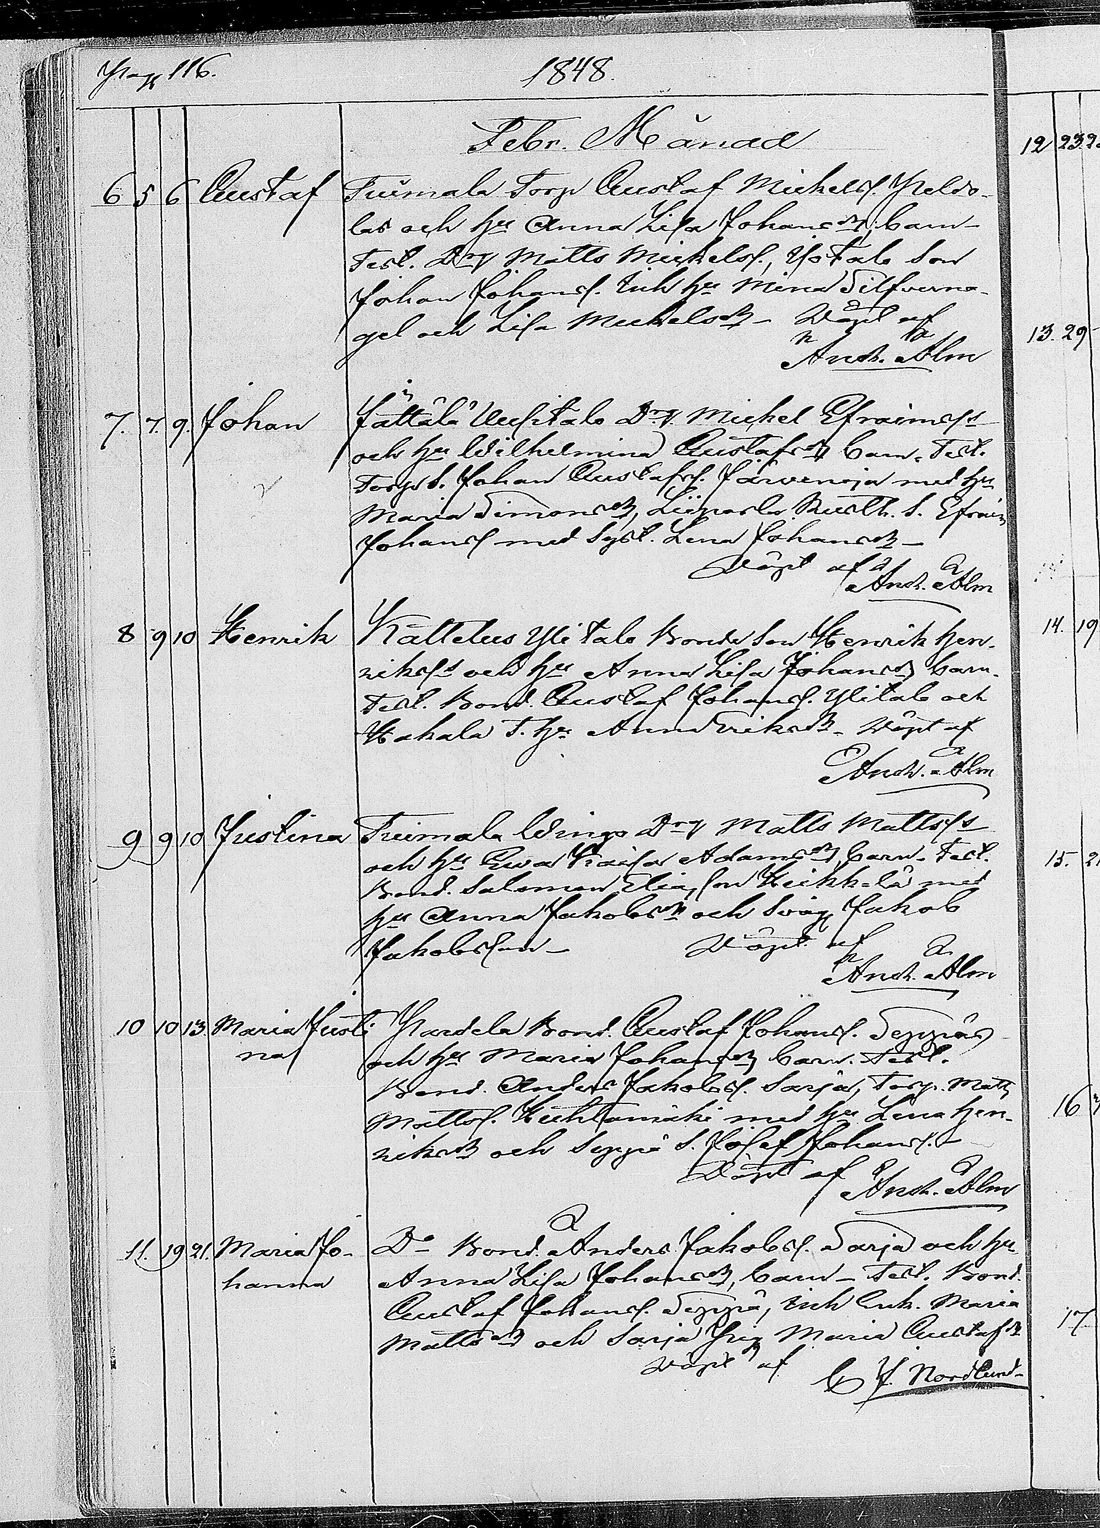 Pag 116.
1848.
Febr. Månad
12 23 2
6 5 6 Gustaf Tuimala Torp Gustaf Michelss.
och hu Anna Lisa Johansdr, barn
Test. Drg Matts Michelss., son
Johan Johanss. Inh hu Mina Silfverna-
gel och Lisa Michelsdr – Döpt af
Andr. Alm
13. 29
7. 7. 9. Johan Drg. Michel Efraimss
och hu Wilhelmina Gustafsdr barn. Test.
Torps. Johan Gustafss. Järvenoja med hu
Maria Simonsdr, S. Efraim
Johanss med Syst. Lena Johansdr –
Döpt af Andr. Alm
8 9 10 Henrik Kättelus Ylitalo Bonde Son Henrik Hen-
rikss och hu Anna Lisa Johansdr barn.
Test. Bond. Gustaf Johanss. Ylitalo och
Hakala hu Anna Eriksdr – Döpt af
Andr. Alm
14. 19
9 9 10 Justina Tuimala Drg Matts Mattss
och hu Ewa Adamsdr, barn. Test.
Bond. Salomon Eliasson Heikkilä med
hu Anna Jakobsdr och Svåg Jakob
Jakobsson – Döpt af
Andr. Alm
15. 21
10 10 13. Maria Justi- Bond. Gustaf Johanss. Seppä
na och hu Maria Johansdr barn. Test.
Bond. Anders Jakobss. Sarja, Torp. Matts
Mattss. Huhtamäki med hu Lena Hen-
riksdr och Seppä S. Josef Johanss. –
Döpt af Andr. Alm
16
11. 19 21. Maria Jo- Do Bond. Anders Jakobss. Sarja och hu
hanna Anna Lisa Johansdr, barn – Test. Bond.
Gustaf Johanss. Seppä, Inh Enk. Maria
Mattsdr och Sarja Pig Maria Gustafsdr
Döpt af C J. Nordlund
17